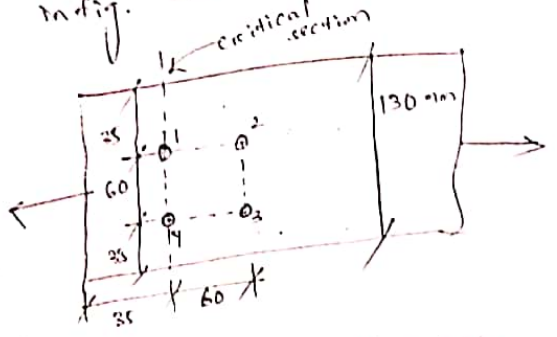 in fig.
critical
section
1
130 mm
35
1
2
60
4
3
35
35
60